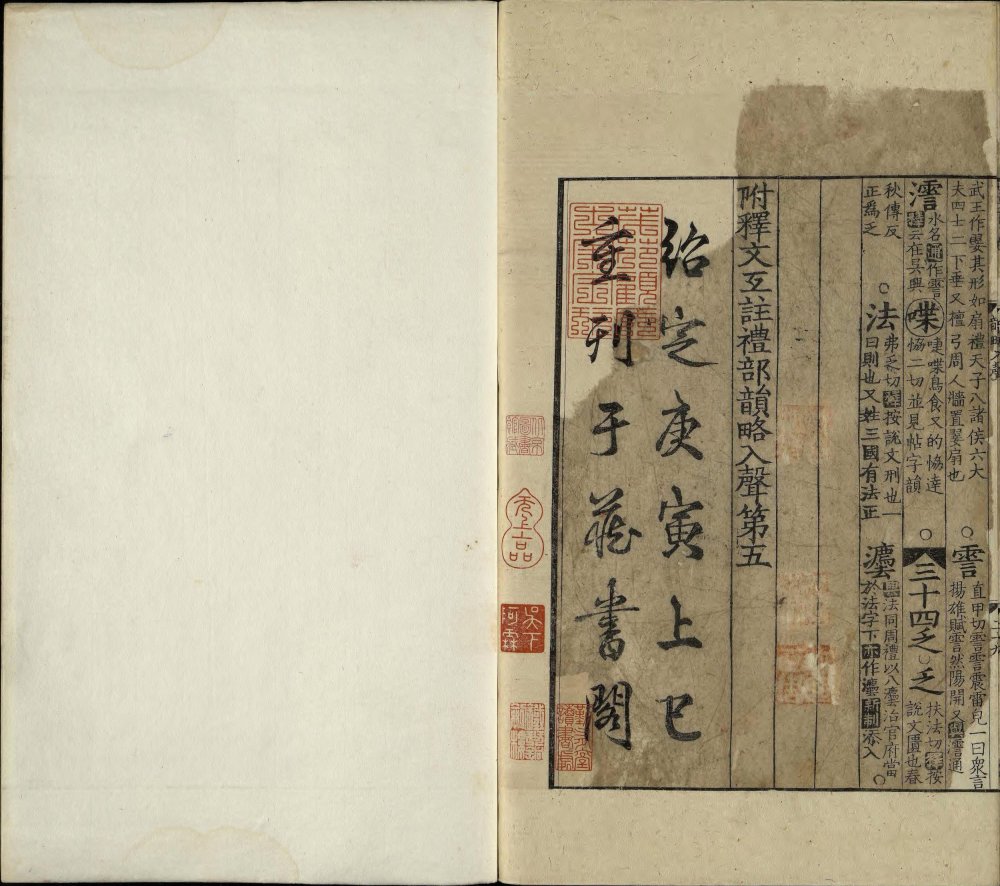 武王作翣其形如扇禮天子八諸侯六大
夫四士二下垂又檀弓周人牆置翣扇也
霅
直甲切霅霅震雷皃一曰衆言
揚雄賦霅然陽開又
通
水名
作霅
云在吳興
喋
啑喋鳥食又的恊達
恊二切並見帖字韻
三十四乏
乏
扶法切
按
說文匱也春
秋傳反
正爲乏
法
弗乏切
按說文刑也一
曰則也又姓三國有法正
灋
法同周禮以八灋治官府當
於法字下亦作灋新制添入
附釋文互註禮部韻略入聲第五
紹定庚寅上巳
重刊于藏書閣